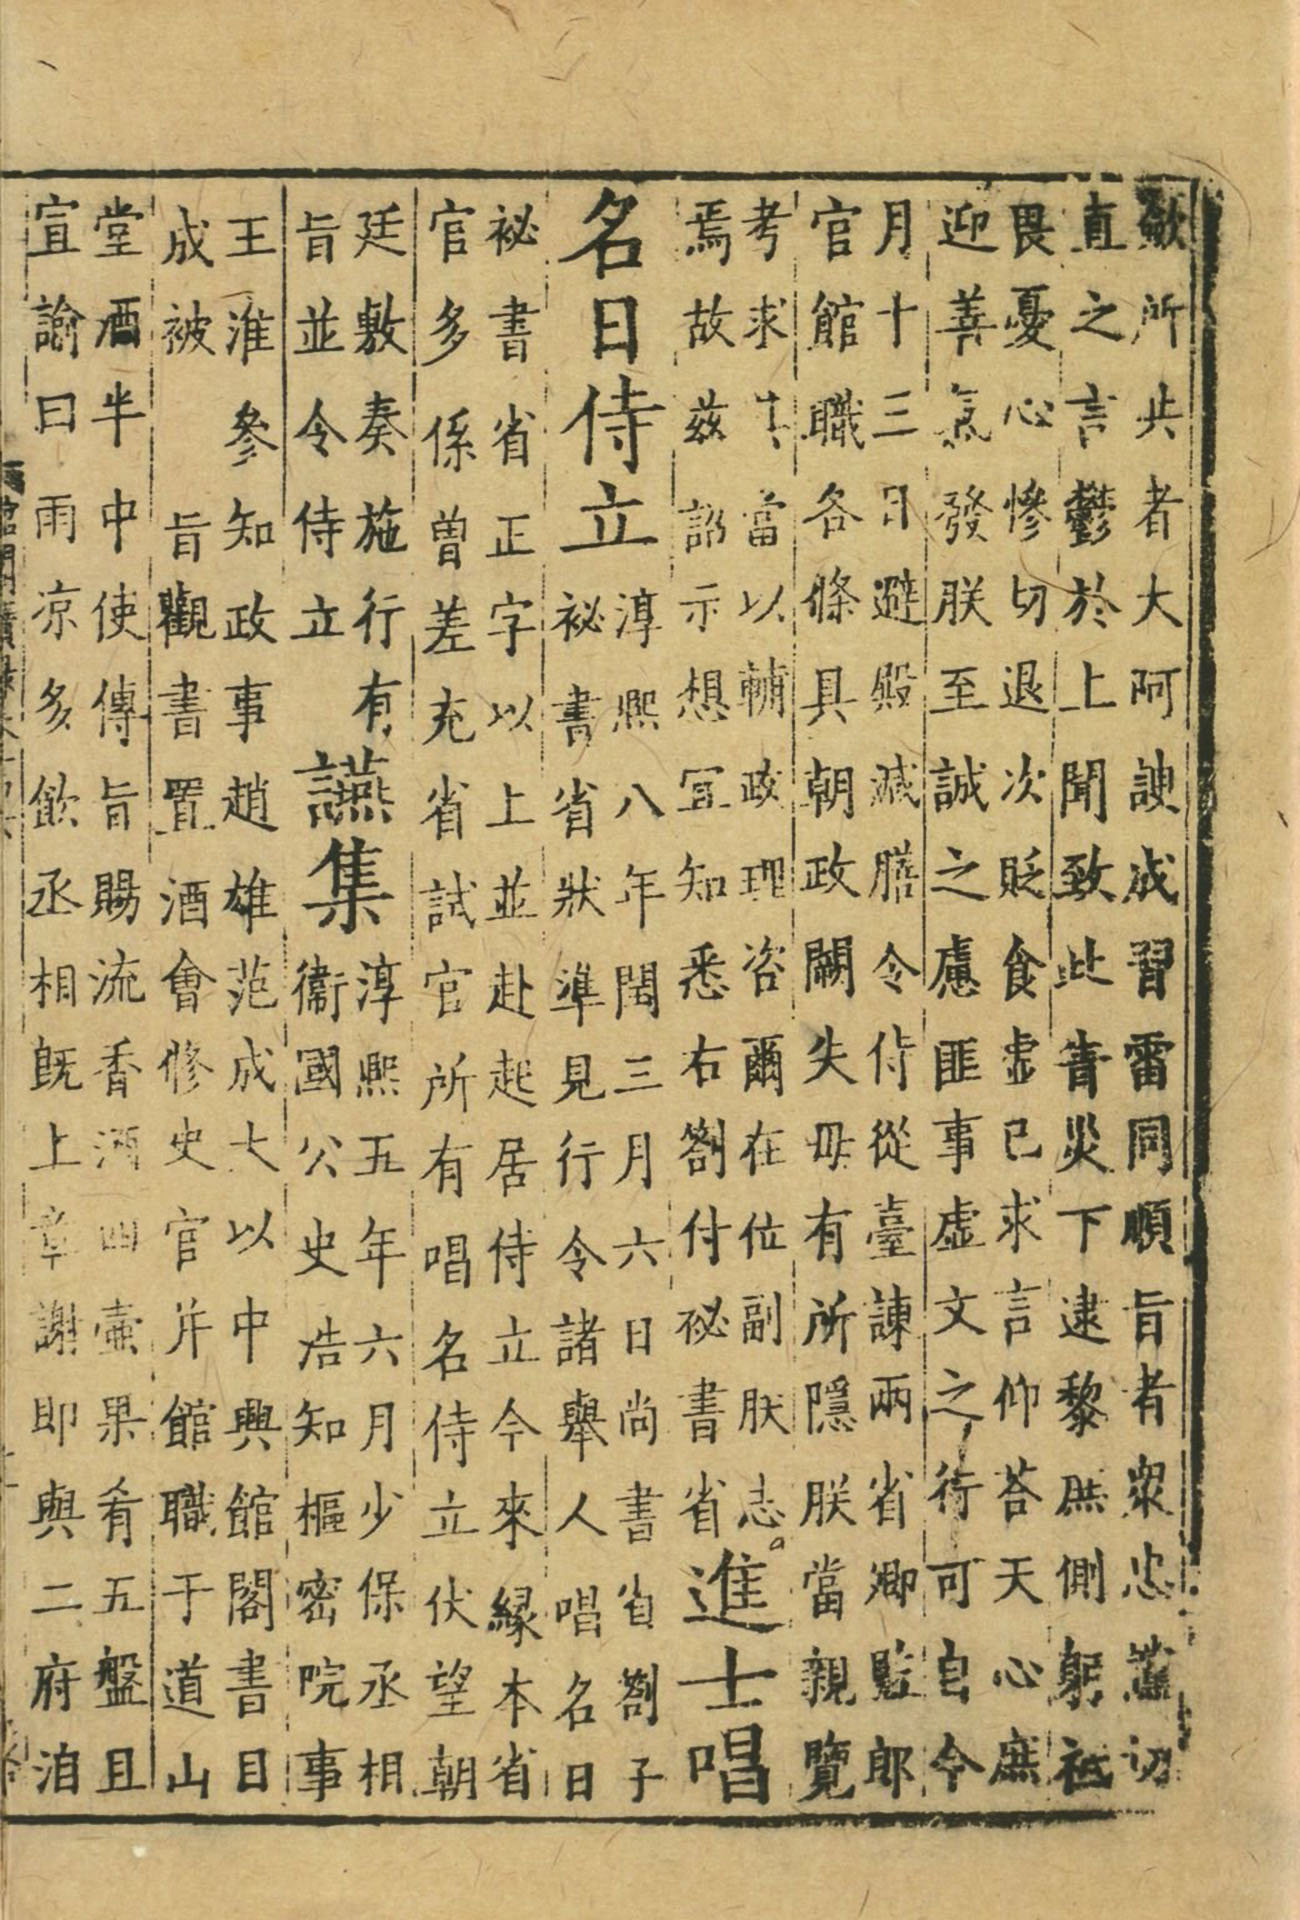 歟所共者大阿諛成習雷同順旨者衆忠讜切
直之言鬱於上聞致此眚災下逮黎庶側躬祗
畏憂心慘切退次貶食虛已求言仰荅天心庶
迎善氣發朕至誠之慮匪事虛文之行可自今
月十三日避殿減膳令侍從臺諫兩省卿監郎
官館職各條具朝政闕失毋有所隱朕當親覽
考求 當以輔政理咨爾在位副朕志
焉故茲詔示想宜知悉右劄付祕書省進士唱
名日侍立淳熙八年閏三月六日尚書省劄子
祕書省狀準見行令諸舉人唱名日
祕書省正字以上並赴起居侍立今來緣本省
官多係曽差充省試官所有唱名侍立伏望朝
廷敷奏施行有
旨並令侍立讌集淳熙五年六月少保丞相
衞國公史浩知樞密院事
王淮參知政事趙雄范成大以中興館閣書目
成被旨觀書置酒會修史官并館職于道山
堂酒半中使傳旨賜流香酒四壷果肴五盤且
宣諭曰雨凉多飲丞相旣上章謝即與二府洎